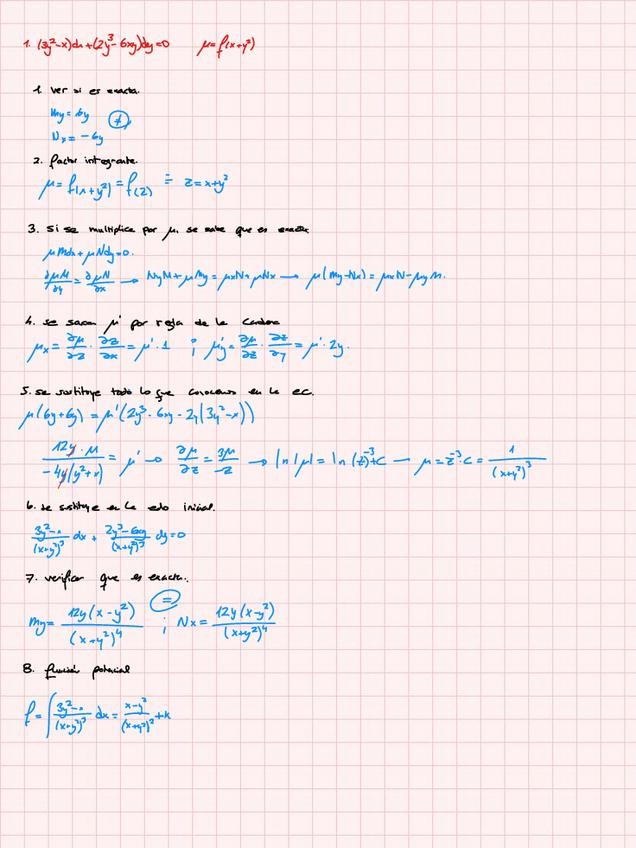 1. (3y²-x)dx+(2y³-6xy)dy=0 μ=f(x+y²)
1. Ver si es exacta.
My= 6y ≠
Nx= -6y
2. factor integrante.
μ= f(x+y²) = f(z) ÷ z=x+y²
3. Si se multiplica por μ, se sabe que es exacta
μMdx+μNdy=0.
∂μM/∂y = ∂μN/∂x → μyM+μMy=μxN+μNx → μ(My-Nx)=μxN-μyM.
4. se sacan μ' por regla de la cadena
μx= ∂μ/∂z · ∂z/∂x = μ'·1 ; μy= ∂μ/∂z · ∂z/∂y = μ'·2y.
5. se sustituye todo lo que conocemos en la ec.
μ(6y+6y) = μ'(2y³-6xy-2y(3y²-x))
12y·μ/-4y(y²+x) = μ' → ∂μ/∂z = 3μ/-z → ln|μ| = ln(z)⁻³+c → μ=z⁻³·c = 1/(x+y²)³
6. se sustituye en la edo inicial.
3y²-x/(x+y²)³ dx + 2y³-6xy/(x+y²)³ dy=0
7. verificar que es exacta.
My= 12y(x-y²)/(x+y²)⁴ = ; Nx= 12y(x-y²)/(x+y²)⁴
8. función potencial
f= ∫ 3y²-x/(x+y²)³ dx = x-y²/(x+y²)² +k